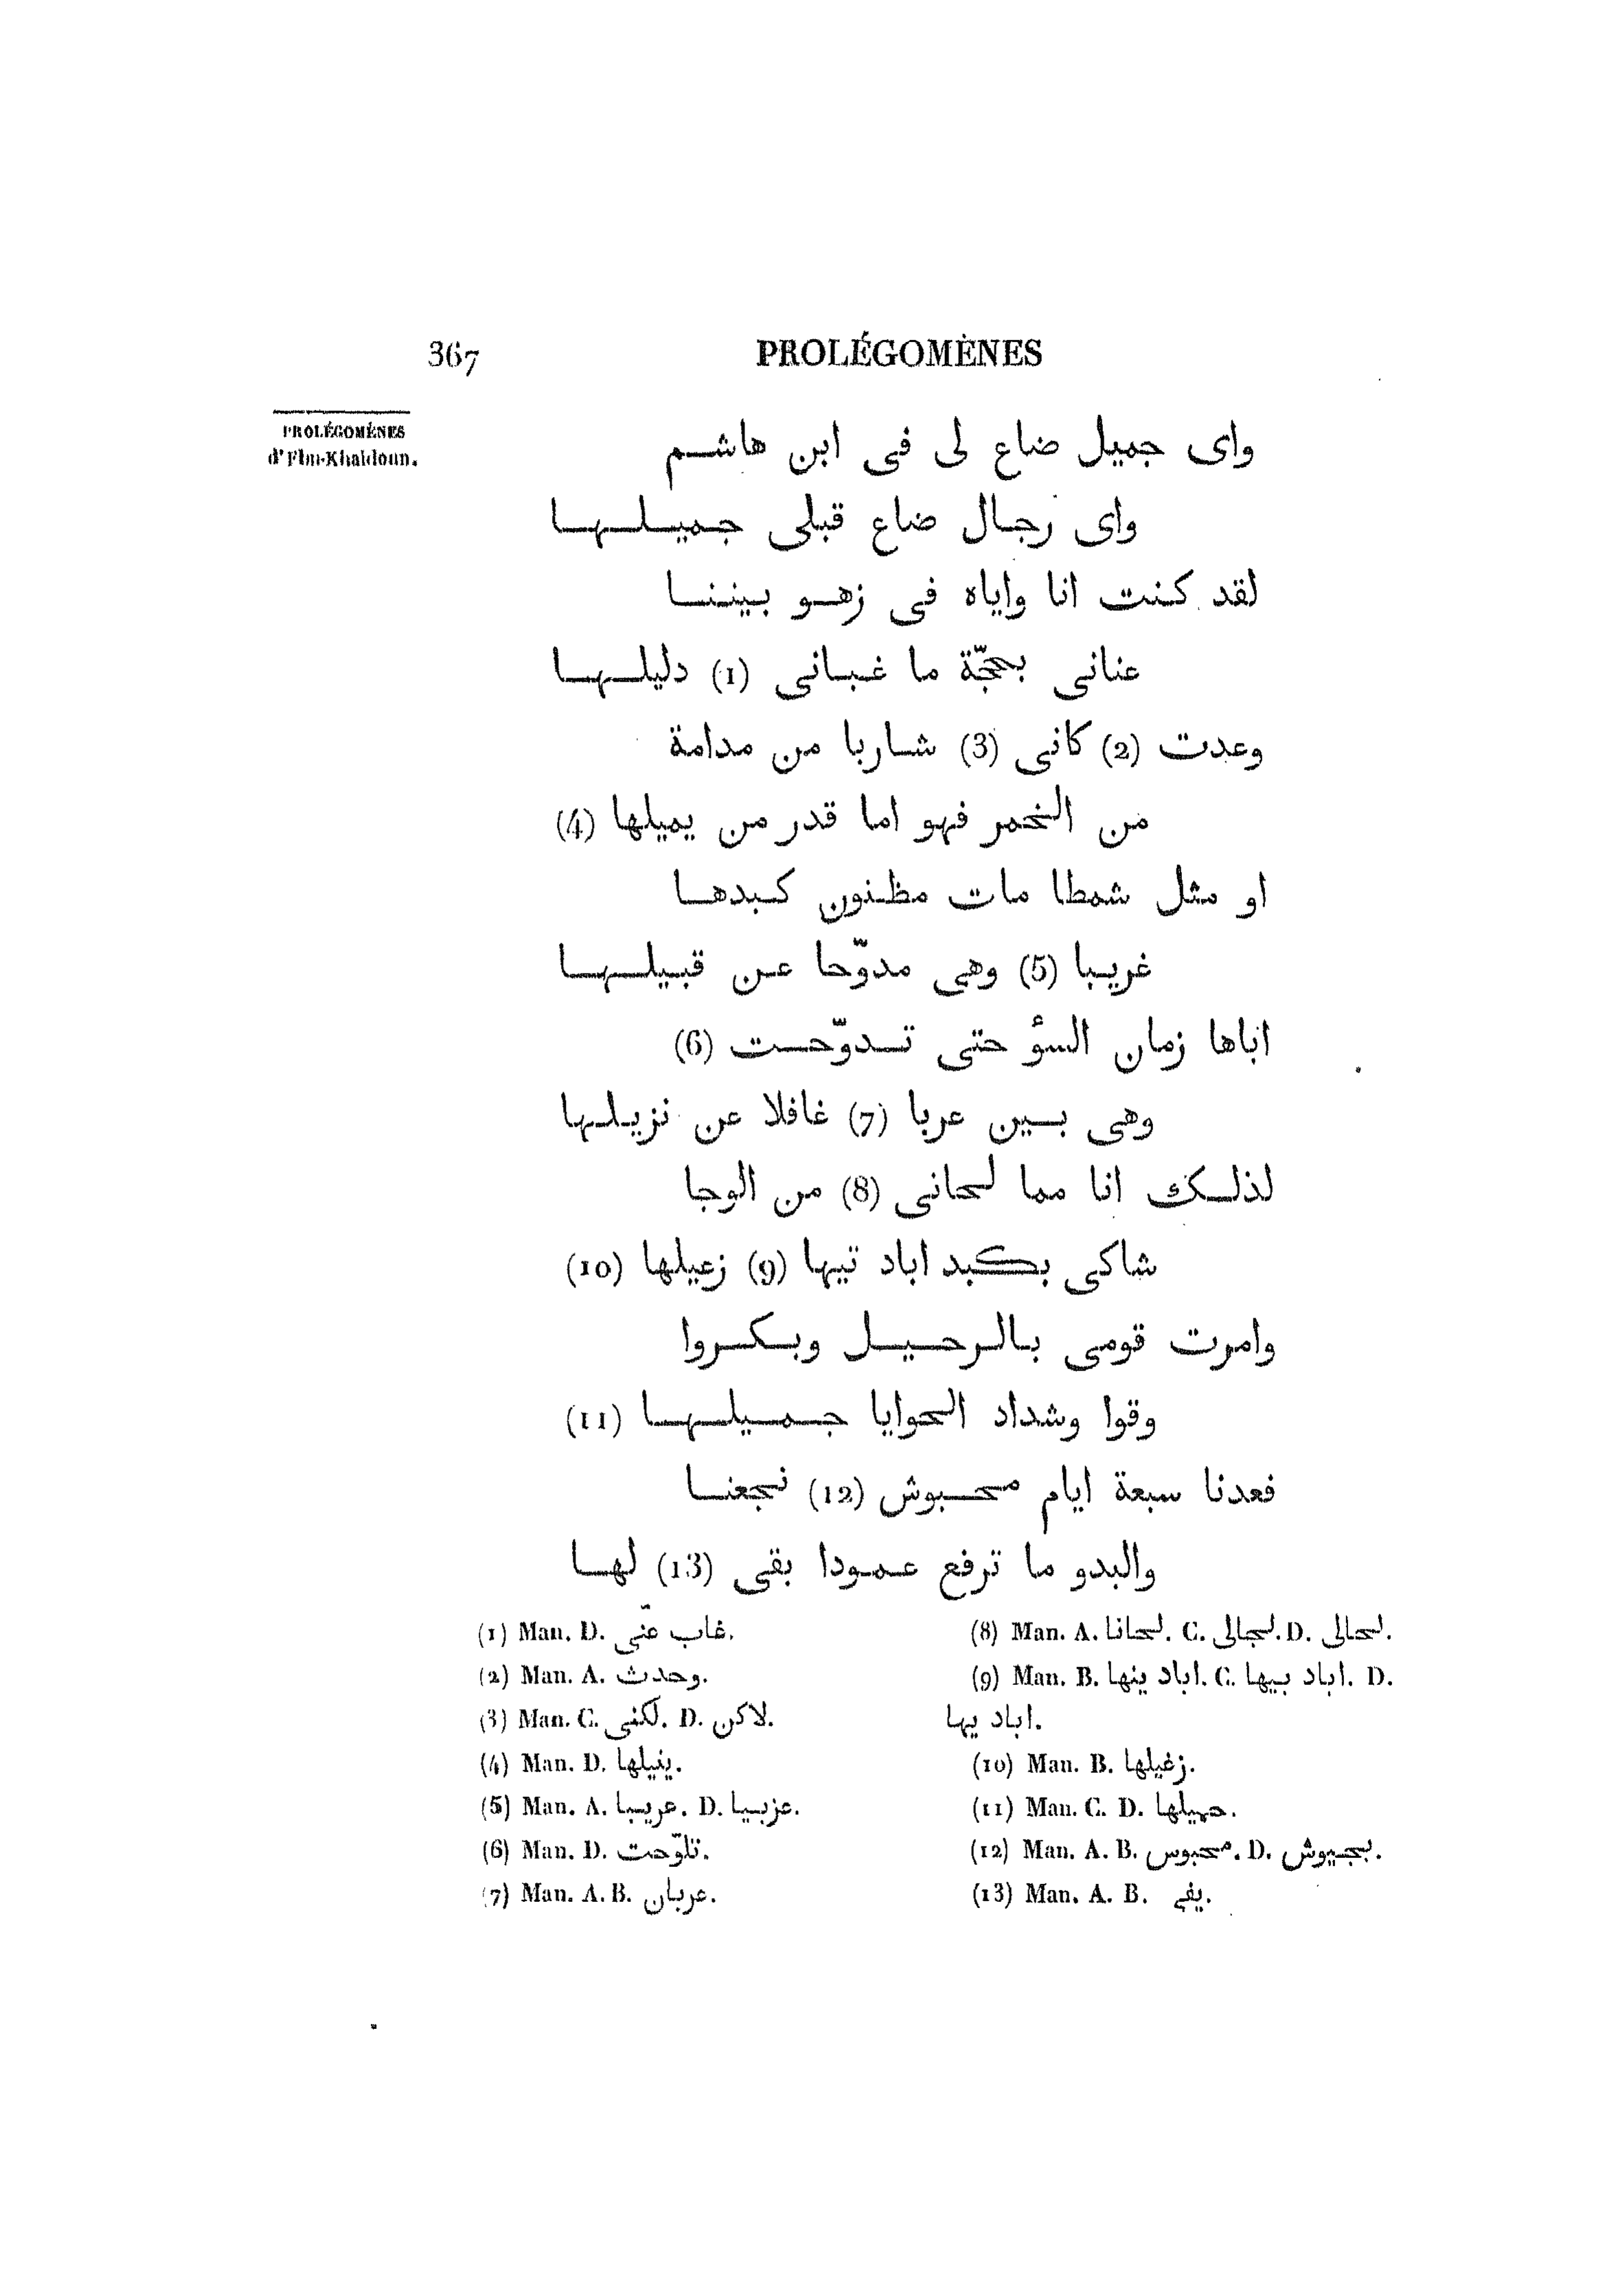 367 PROLÉGOMÈNES
PROLÉGOMÈNES
d'Ebn-Khaldoun.
واى جميل ضاع لى فى ابن هاشم
واى رجال ضاع قبلى جميلها
لقد كنت انا واياه فى زهو بيننا
عنانى بحجّة ما غبانى (1) دليلها
وعدت (2) كانى (3) شاربا من مدامة
من الخمر فهو اما قدر من يميلها (4)
او مثل شمطا مات مظنون كبدها
غريبا (5) وهى مدوّحا عن قبيلها
اتاها زمان السوٴ حتى تدوّحت (6)
وهى بين عربا (7) غافلا عن نزيلها
لذلك انا مما لحانى (8) من الوجا
شاكى بكبد اباد تيها (9) زعيلها (10)
وامرت قومى بالرحيل وبكروا
وقوا وشداد الحوايا جميلها (11)
فعدنا سبعة ايام محبوش (12) نجعنا
والبدو ما ترفع عمودا بقى (13) لها
(1) Man. D. غاب عنّى.
(2) Man. A. وحدث.
(3) Man. C. لكنى. D. لاكن.
(4) Man. D. ينيلها.
(5) Man. A. عريبا. D. عزبيا.
(6) Man. D. تلوّحت.
(7) Man. A. B. عربان.
(8) Man. A. لحانا. C. لجالى. D. لحالى.
(9) Man. B. اباد ينها. C. اباد بيها. D.
اباد يها.
(10) Man. B. زغيلها.
(11) Man. C. D. حميلها.
(12) Man. A. B. محبوس. D. بجيوش.
(13) Man. A. B. يفى.